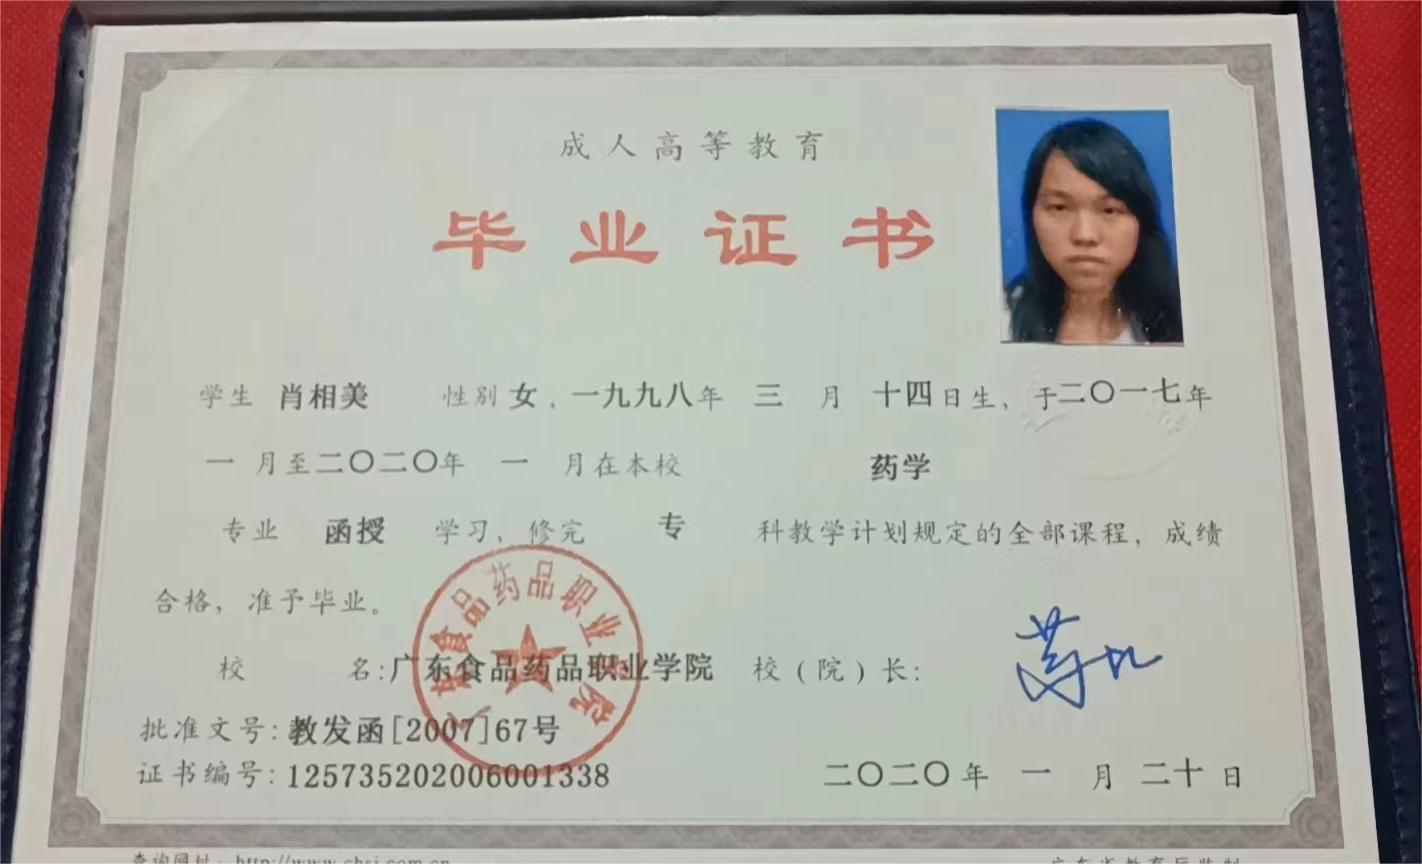 成人高等教育
毕业证书
学生 肖相美 性别 女，一九九八年 三 月 十四日生，于二〇一七年
一 月至二〇二〇年 一 月在本校 药学
专业 函授 学习，修完 专 科教学计划规定的全部课程，成绩
合格，准予毕业。
校 名:广东食品药品职业学院 校（院）长:
广东食品药品职业学院
批准文号:教发函[2007]67号
证书编号:125735202006001338 二〇二〇年 一 月 二十 日
查询网址: http://www.chsi.com.cn 广东省教育厅监制